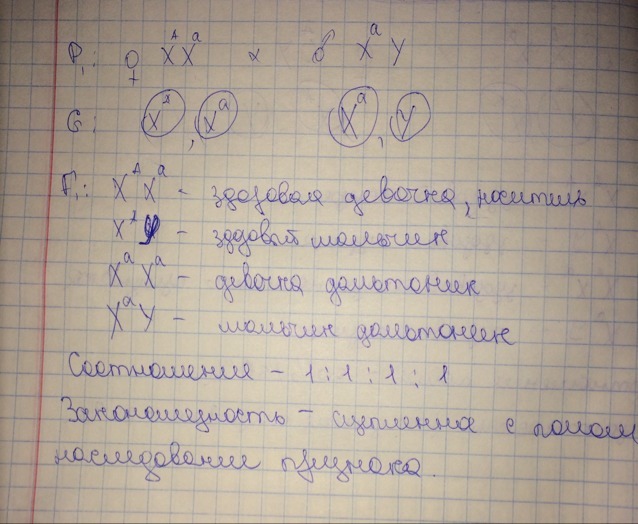 P₁: ♀ XᴬXᵃ × ♂ XᵃY
G: Xᴬ, Xᵃ Xᵃ, Y
F₁: XᴬXᵃ - здоровая девочка, носитель
XᴬY - здоровый мальчик
XᵃXᵃ - девочка дальтоник
XᵃY - мальчик дальтоник
Соотношение - 1 : 1 : 1 : 1
Закономерность - сцепленное с полом
наследование признака.